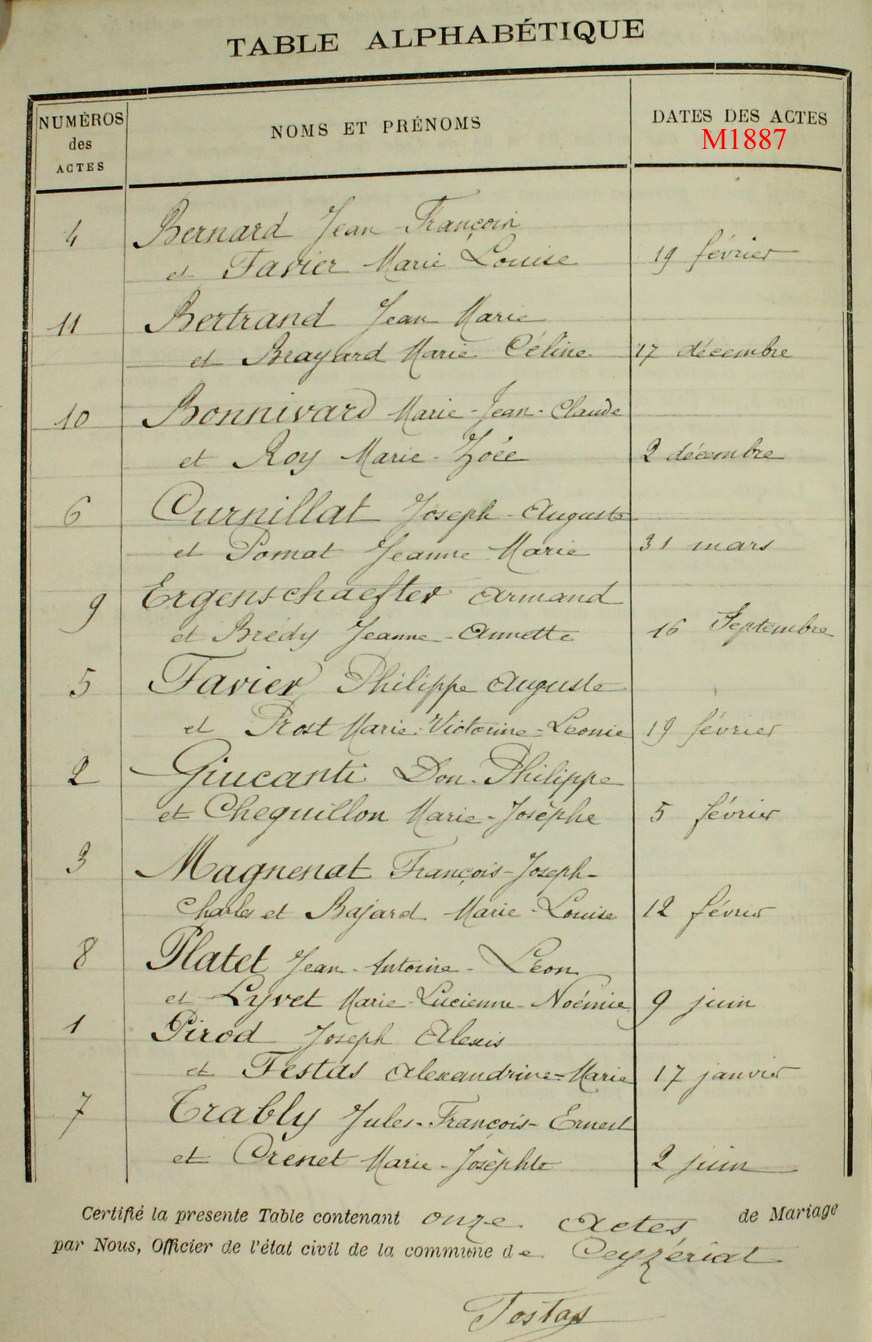 TABLE ALPHABÉTIQUE
NUMÉROS des ACTES
NOMS ET PRÉNOMS
DATES DES ACTES
M1887
4 Bernard Jean François
et Favier Marie Louise 19 février
11 Bertrand Jean Marie
et Brayard Marie Céline 17 décembre
10 Bonnivard Marie-Jean-Claude
et Roy Marie-Zoée 2 décembre
6 Curnillat Joseph-Auguste
et Pomat Jeanne Marie 31 mars
9 Ergenschaeffer Armand
et Brédy Jeanne-Annette 16 Septembre
5 Favier Philippe Auguste
et Prost Marie-Victorine-Leonie 19 février
2 Giucanti Don-Philippe
et Chequillon Marie-Josèphe 5 février
3 Magnenat François-Joseph-
Charles et Bajard Marie-Louise 12 février
8 Platet Jean-Antoine-Léon
et Lyvet Marie-Lucienne-Noémie 9 juin
1 Pirod Joseph Alexis
et Festas Alexandrine-Marie 17 janvier
7 Trably Jules-François-Ernest
et Crenet Marie-Josèphte 2 juin
Certifié la presente Table contenant onze Actes de Mariage
par Nous, Officier de l'état civil de la commune de Ceyzériat
Tostas